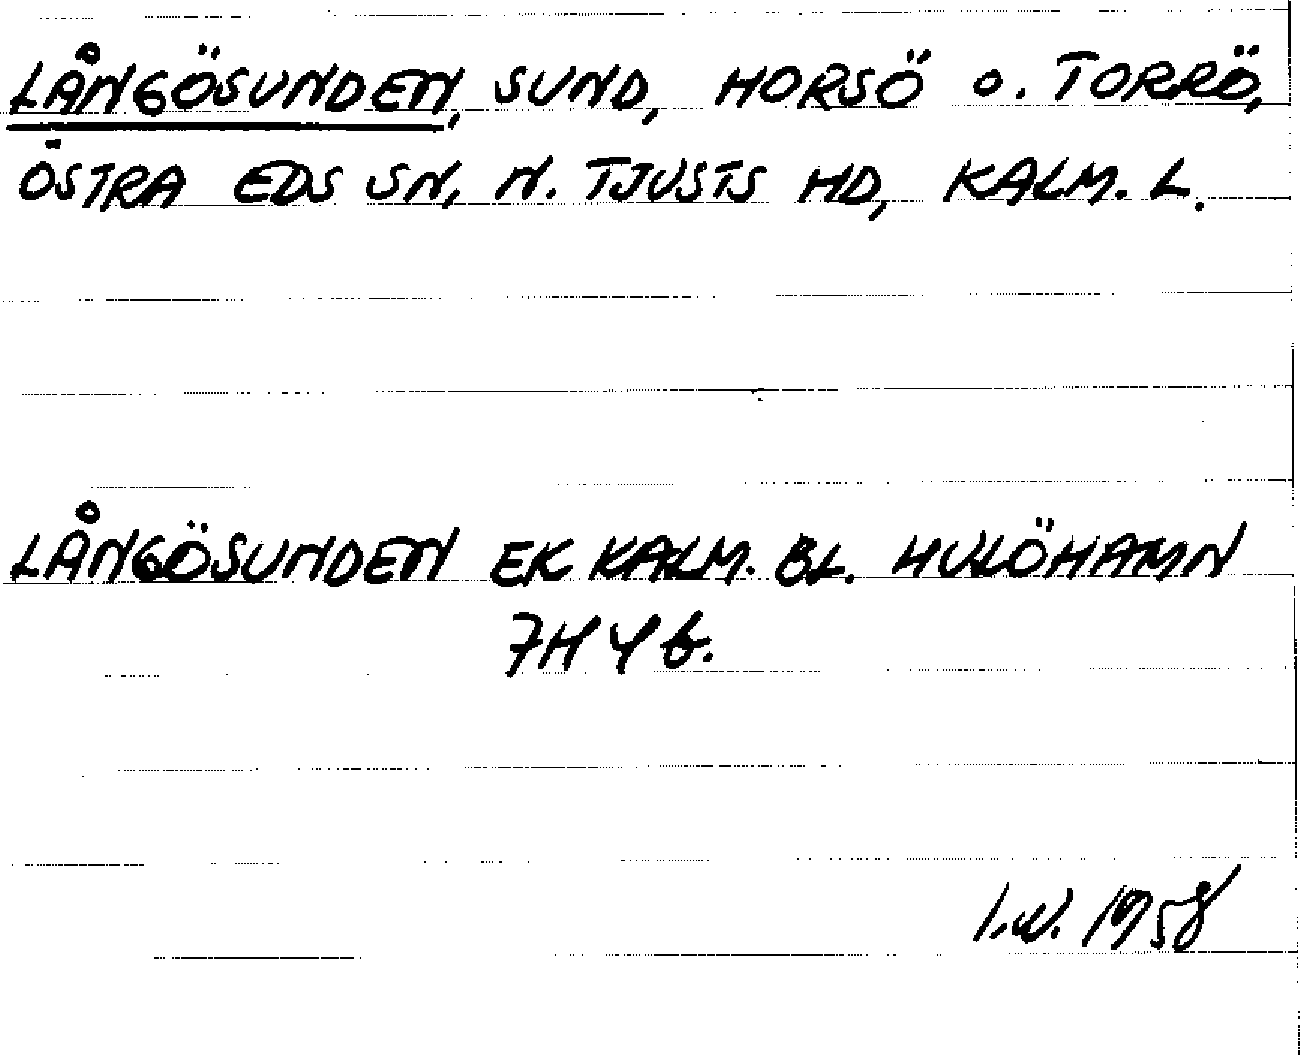 LÅNGÖSUNDEN, SUND, HORSÖ O. TORRÖ,
ÖSTRA EDS SN, N. TJUSTS HD, KALM. L.
LÅNGÖSUNDEN EK KALM. BL. HULÖHAMN
7H 4 b.
I.W. 1958